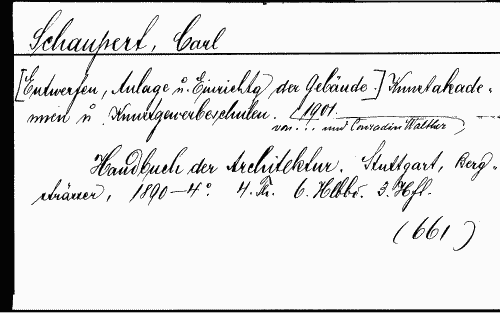 Schaupert, Carl
[Entwerfen, Anlage u. Einrichtg der Gebäude.] Kunstakade-
mien u. Kunstgewerbeschulen. (1901.
von ... und Conradin Walther)
Handbuch der Architektur. Stuttgart, Berg-
strässer, 1890 — 4°. 4. Th. 6. Hlbbd. 3. Hft.
(661)